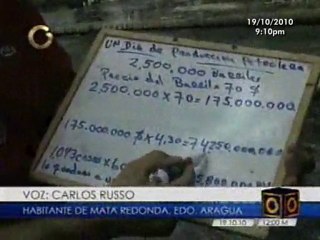 19/10/2010
9:10pm
UN Dia de Produccion Petrolera
2,500,000 Barriles
Precio del Barril 70 $
2,500.000 x 70 = 175.000.000
175.000.000 $ x 4,30 = 74250.000.000
VOZ: CARLOS RUSSO
HABITANTE DE MATA REDONDA, EDO. ARAGUA
19.10.10 12:00M